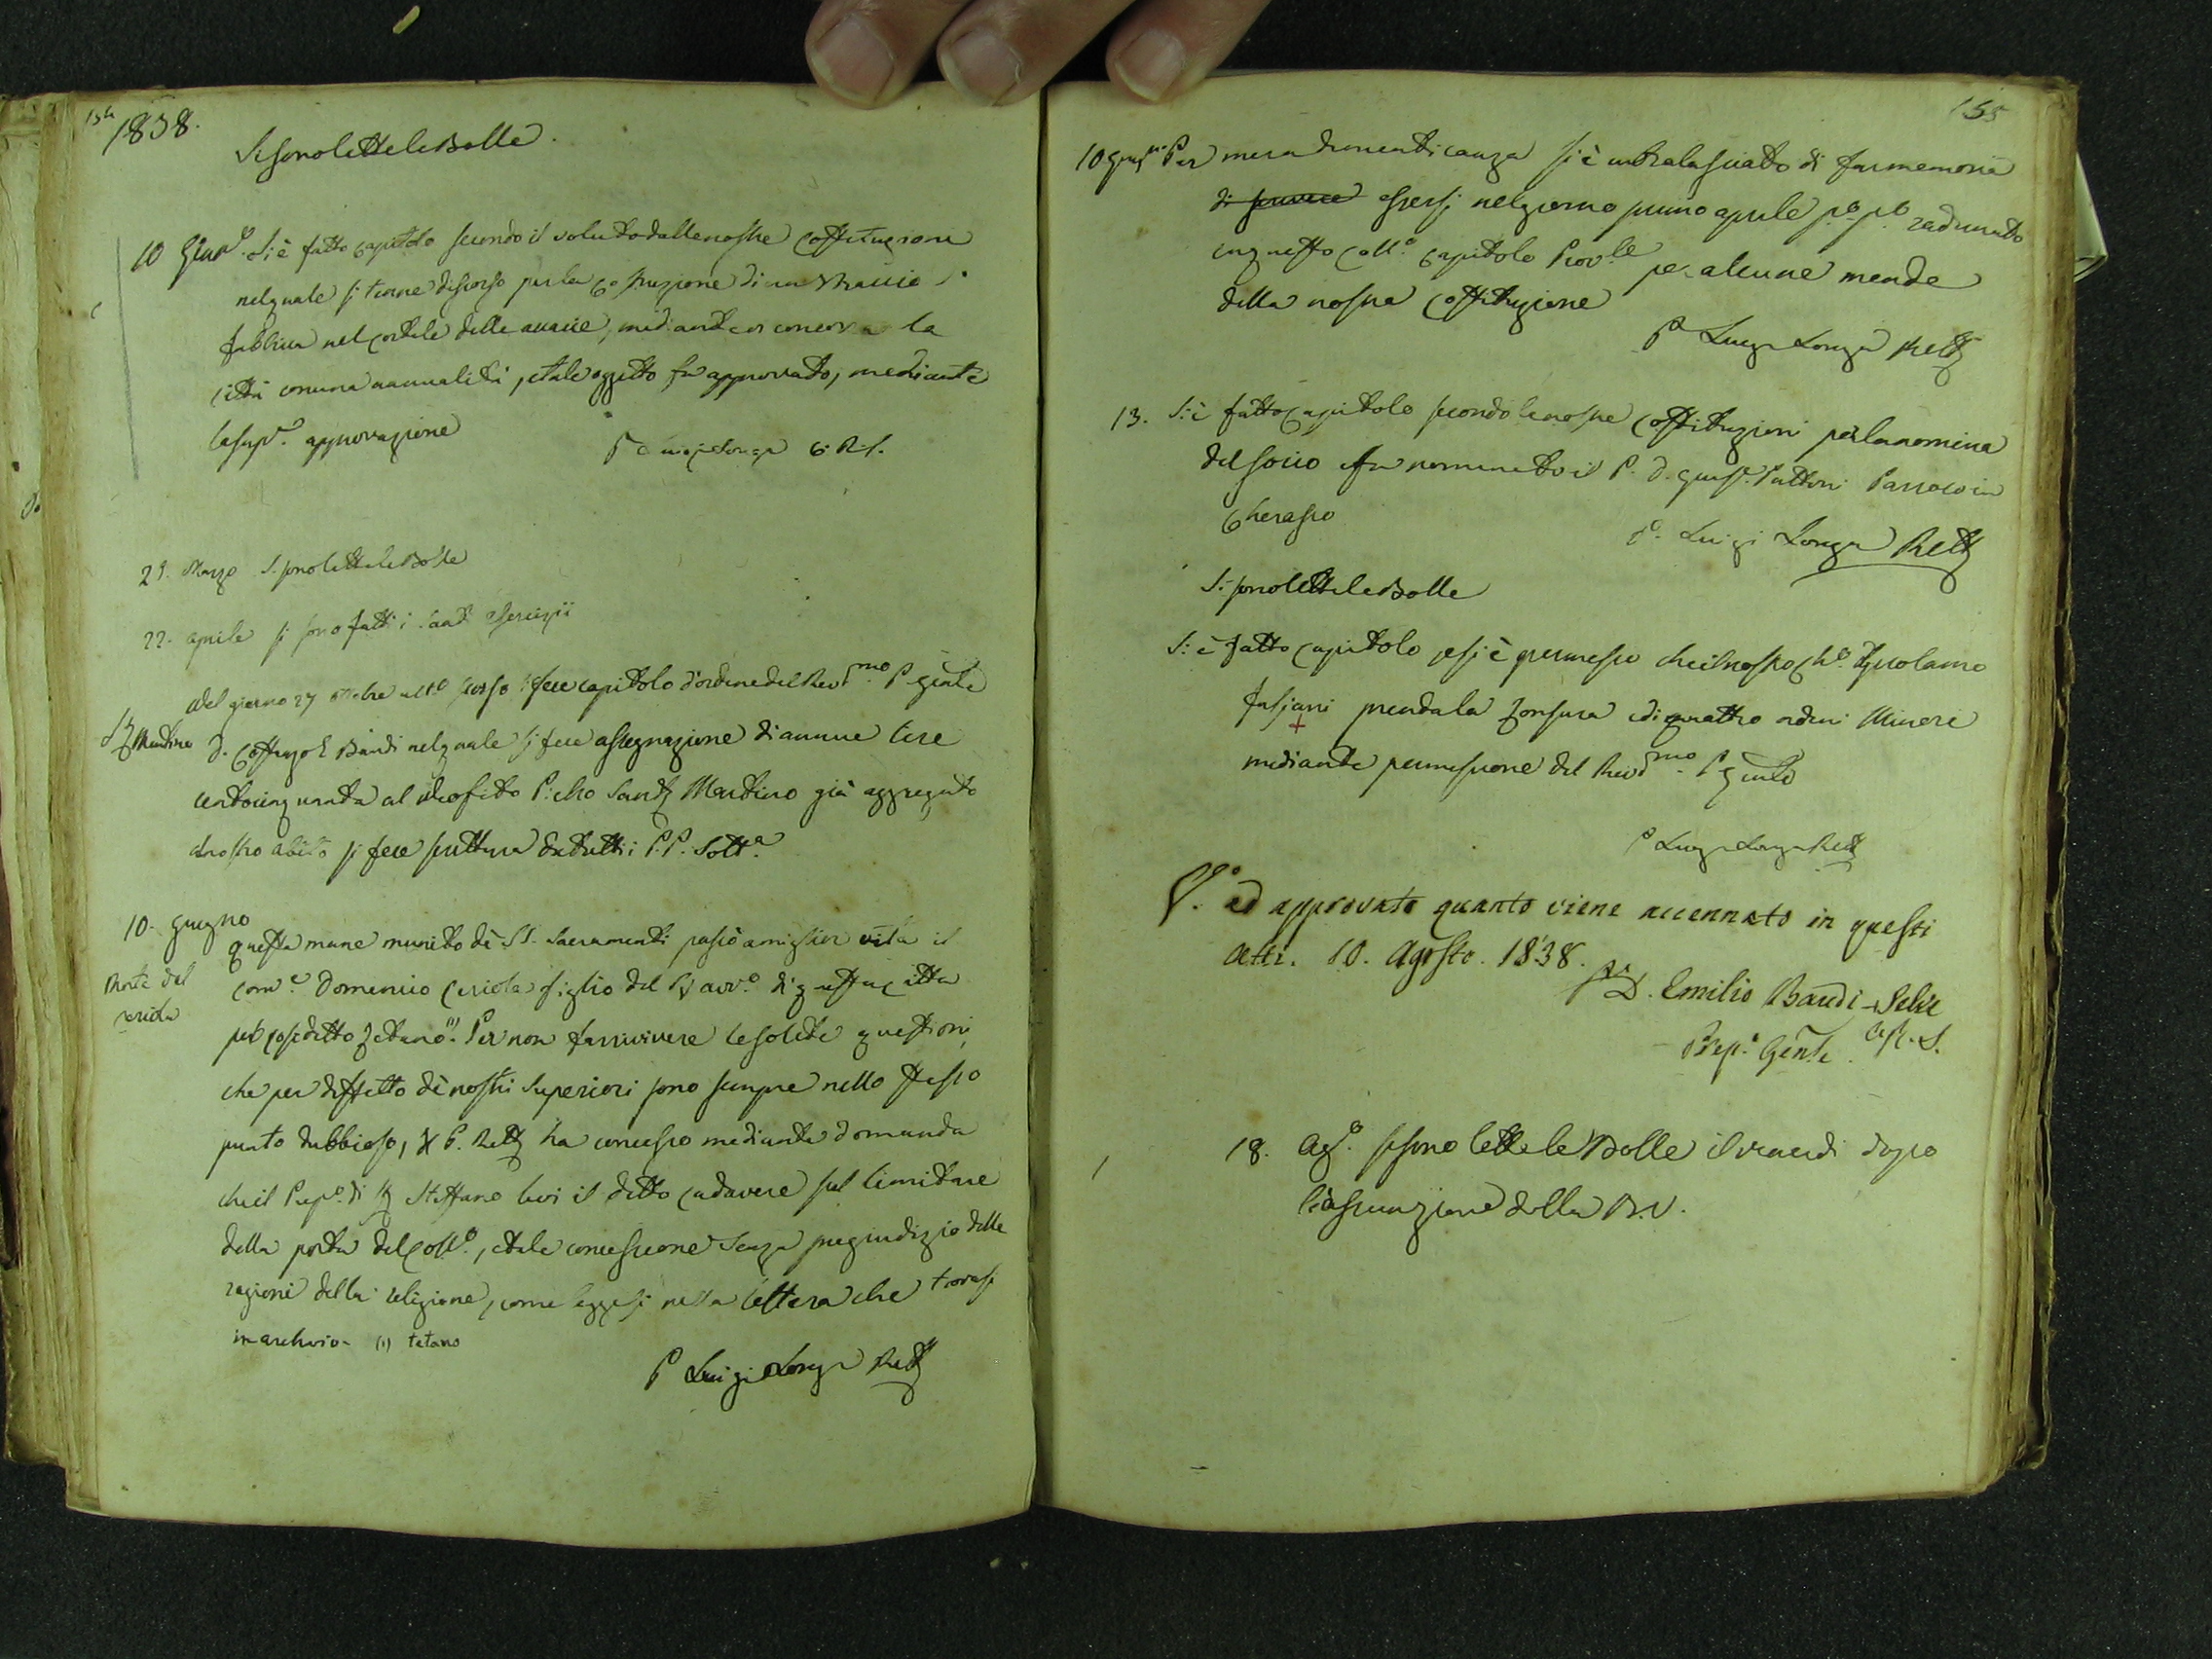 154
1838.
Si sono lette le Bolle.
10 Genn.o Si è fatto capitolo secondo il voluto dalle nostre Costituzioni
nel quale si tenne discorso per la Costruzione di un braccio di
fabbrica nel cortile delle, mediante
città con una annualità, e tale oggetto fu approvato, mediante
la sup.e approvazione
P Luigi Longa C. R. S.
29. Marzo Si sono lette le Bolle
22. aprile si sono fatti i Santi Esercizii
Nel giorno 27 8tobre ult.o scorso si fece capitolo d'ordine del Rev.mo P. Gen.le
Mendino
D. Bandi nel quale si fece assegnazione di annue lire
centocinquanta al Neofito già aggregato
al nostro abito si fece scrittura da tutti i P.P. Sott.a
10. Giugno
questa mane munito dè SS. Sacramenti passò a miglior vita il
Morte del
Ceriola
Conv.e Domenico Ceriola figlio del Sig avv.o di questa città
pel così detto Zetano (1). Per non far rivivere le solite questioni,
che per diffetto dè nostri Superiori sono sempre nello stesso
punto dubbioso, il P. Rett. ha concesso mediante domanda
che il Prep.o di S. Steffano levi il detto cadavere sul limitare
della porta del Coll.o, e tale concessione senza pregiudizio delle
ragioni della religione, come leggesi nella lettera che trovasi
in archivio - (1) tetano
P Luigi Longa Rett
155
10 Giug.no Per mera dimenticanza si è intralasciato di far memoria
di scrivere essersi nel giorno primo aprile p.o p.o radunato
in questo Coll.o Capitolo Prov.le per alcune mende
della nostra Costituzione
P Luigi Longa Rett
13. Si è fatto capitolo secondo le nostre Costituzioni per la nomina
del socio e fu nominato il P. D. Gius.e Pattoni Parroco in
Cherasco
P. Luigi Longa Rett
Si sono lette le Bolle
Si è fatto capitolo e si è permesso che il nostro Ch.o Girolamo
Fasiani prenda la Zonsura e di quattro ordini Minori
+
mediante permissione del Rev.mo P. Gen.le
P Luigi Longa Rett
V.o ed approvato quanto viene accennato in questi
atti. 10. Agosto. 1838.
P. D. Emilio Baudi-Selve
Prep.o Gen.le C. R. S.
18. Ag.o si sono lette le Bolle il venerdi dopo
l'assunzione della B.V.